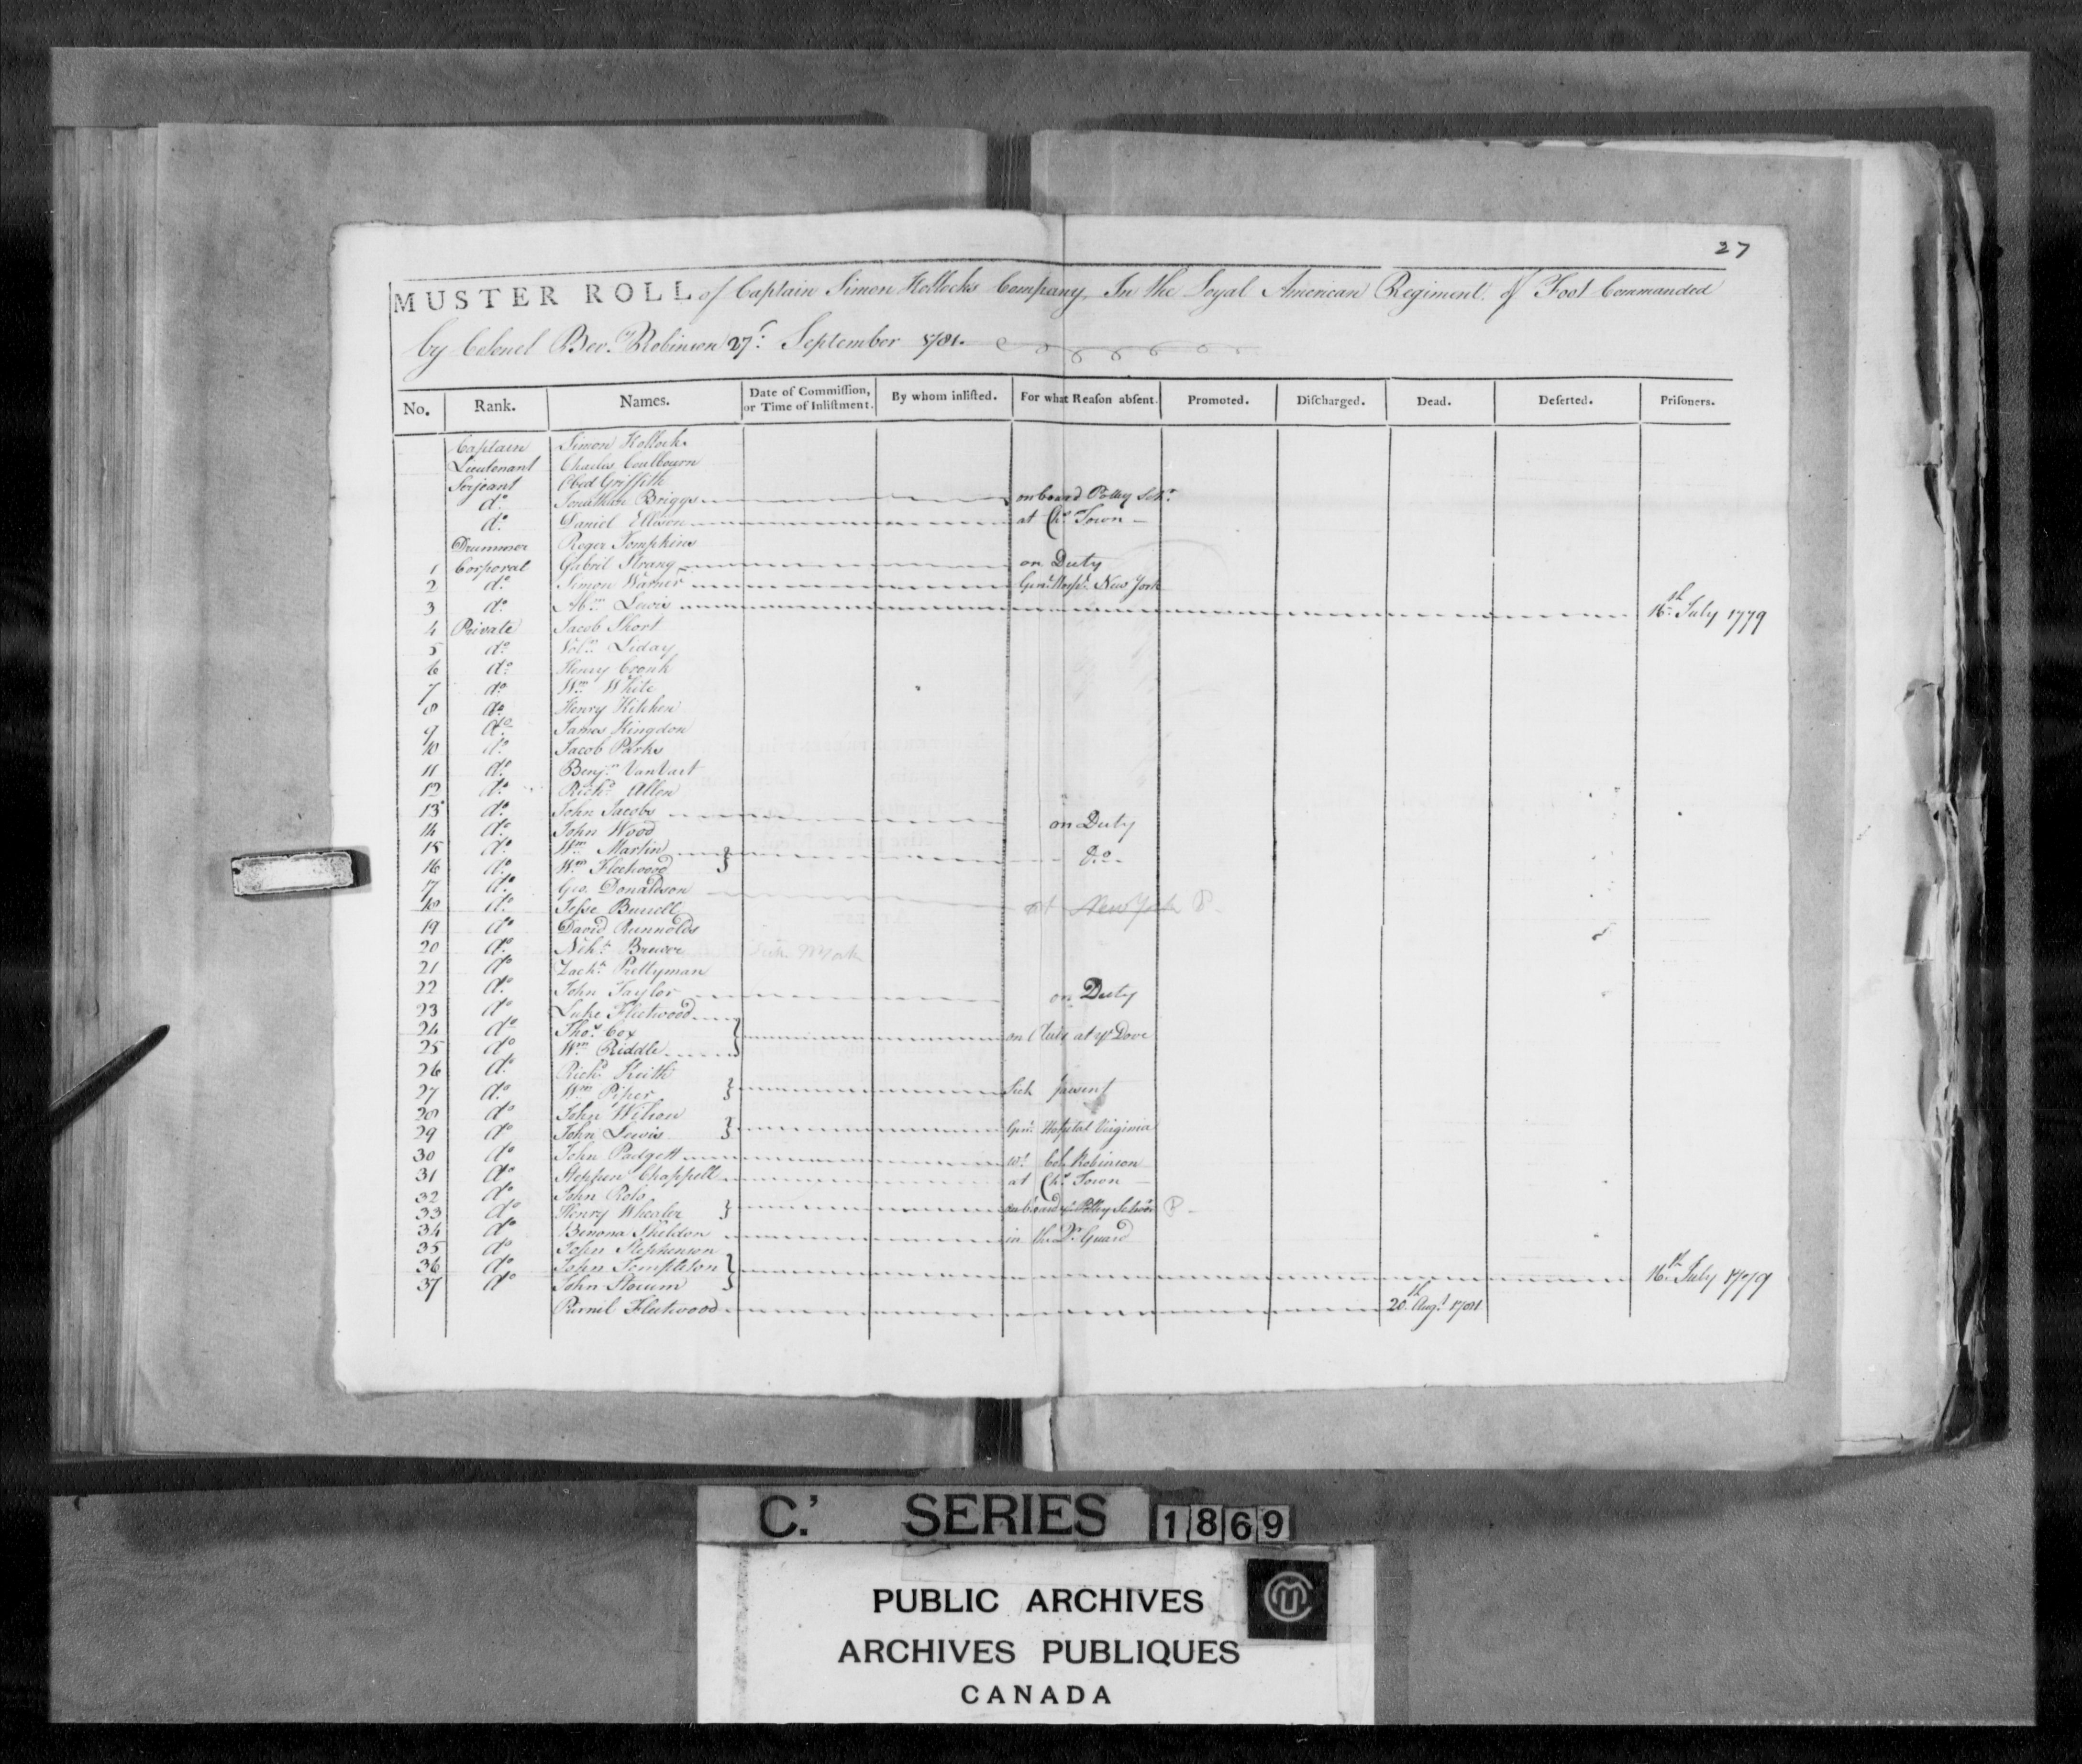 27
MUSTER ROLL of Captain Simon Kollocks Company In the Loyal American Regiment of Foot Commanded
by Colonel Bev. Robinson 27.t September 1781.
No. Rank. Names. Date of Commiſſion, or Time of Inliſtment. By whom inliſted. For what Reaſon abſent. Promoted. Diſcharged. Dead. Deſerted. Priſoners.
Captain Simon Kollock
Lieutenant Charles Coulbourn
Serjeant Obed Griffith
do Jonathan Briggs on board Polley Schr
do Daniel Ellison at Chs Town
Drummer Roger Tompkins
1 Corporal Gabril Strang on Duty
2 do Simon Warner Genl Hospl New York
3 do Abm Lewis 16th July 1779
4 Private Jacob Short
5 do Liday
6 do Henry Cronk
7 do Wm White
8 do Henry Kitchen
9 do James Kingdon
10 do Jacob Parks
11 do Benjn VanVart
12 do Richd Allen
13 do John Jacobs
14 do John Wood on Duty
15 do Wm Martin
16 do Wm Fleetwood } Do
17 do Geo. Donaldson
18 do Jesse Burrell at New York P
19 do David Runnolds
20 do Nehh Brewer Sick N York
21 do Zachh Prettyman
22 do John Taylor on Duty
23 do Luke Fleetwood
24 do Thos Cox } on at ye Dove
25 do Wm Riddle
26 do Richd Keith
27 do Wm Piper } Sick present
28 do John Wilson
29 do John Lewis } Genl Hospital Virginia
30 do John Padgett wt Col. Robinson
31 do Stephen Chappell at Chs Town
32 do John Rols
33 do Henry Wheeler } on board ye Polley Schoor P
34 do Benona Sheldon in the Pt Guard
35 do John Stephenson
36 do John Templeton
37 do John Storum } 16th July 1779
Purnil Fleetwood 20th Augt 1781
C.' SERIES 1869
PUBLIC ARCHIVES
ARCHIVES PUBLIQUES
CANADA